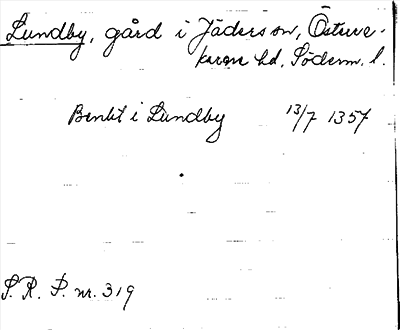 Lundby, gård i Jäders sn, Österre-
karne hd, Söderm. l.
Benkt i Lundby 13/7 1357
S. R. P. nr. 319